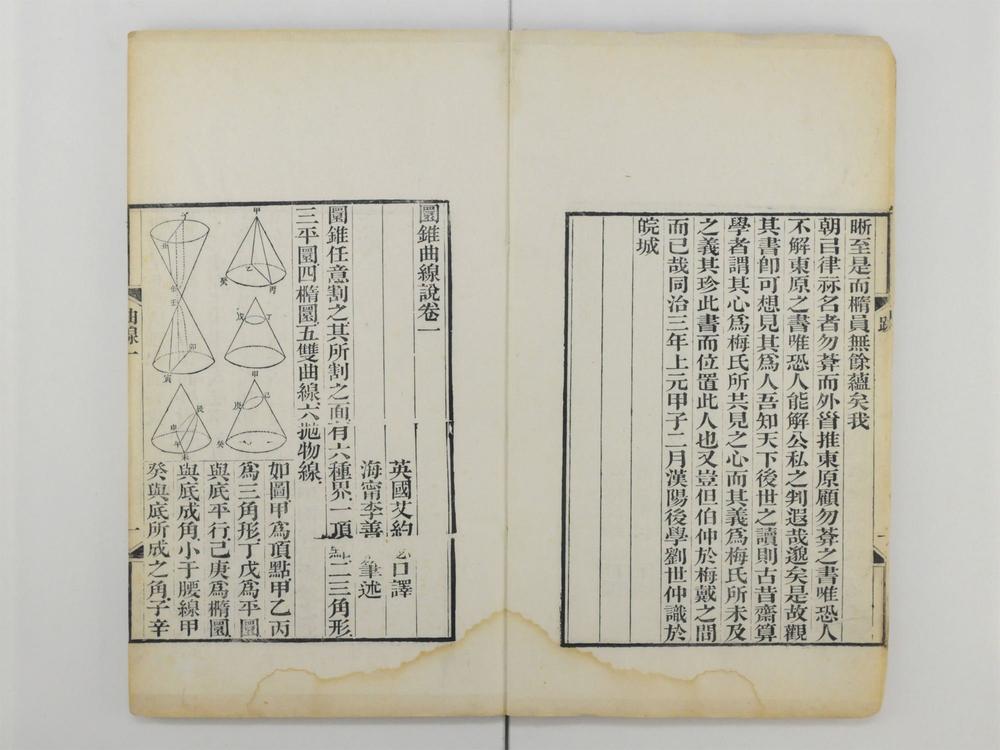 晣至是而橢員無餘蘊矣我
朝弖律祘名者勿葊而外咎推東原顧勿葊之書唯恐人
不解東原之書唯恐人能解公私之判遐哉邈矣是故觀
其書卽可想見其爲人吾知天下後世之讀則古昔齋算
學者謂其心爲梅氏所共見之心而其義爲梅氏所未及
之義其珍此書而位置此人也又豈但伯仲於梅戴之間
而已哉同治三年上元甲子二月漢陽後學劉世仲識於
皖城
跋
圜錐曲線說卷一
英國艾約 口譯
海甯李善 筆述
圜錐任意割之其所割之面有六種界一頂點二三角形
三平圜四橢圜五雙曲線六抛物線
如圖甲爲頂點甲乙丙
爲三角形丁戊爲平圜
與底平行己庚爲橢圜
與底成角小于腰線甲
癸與底所成之角子辛
曲線一
一
甲
乙
丙
癸
戊
丁
甲
己
庚
癸
子
丑
辛
壬
卯
寅
辰
申
午
未